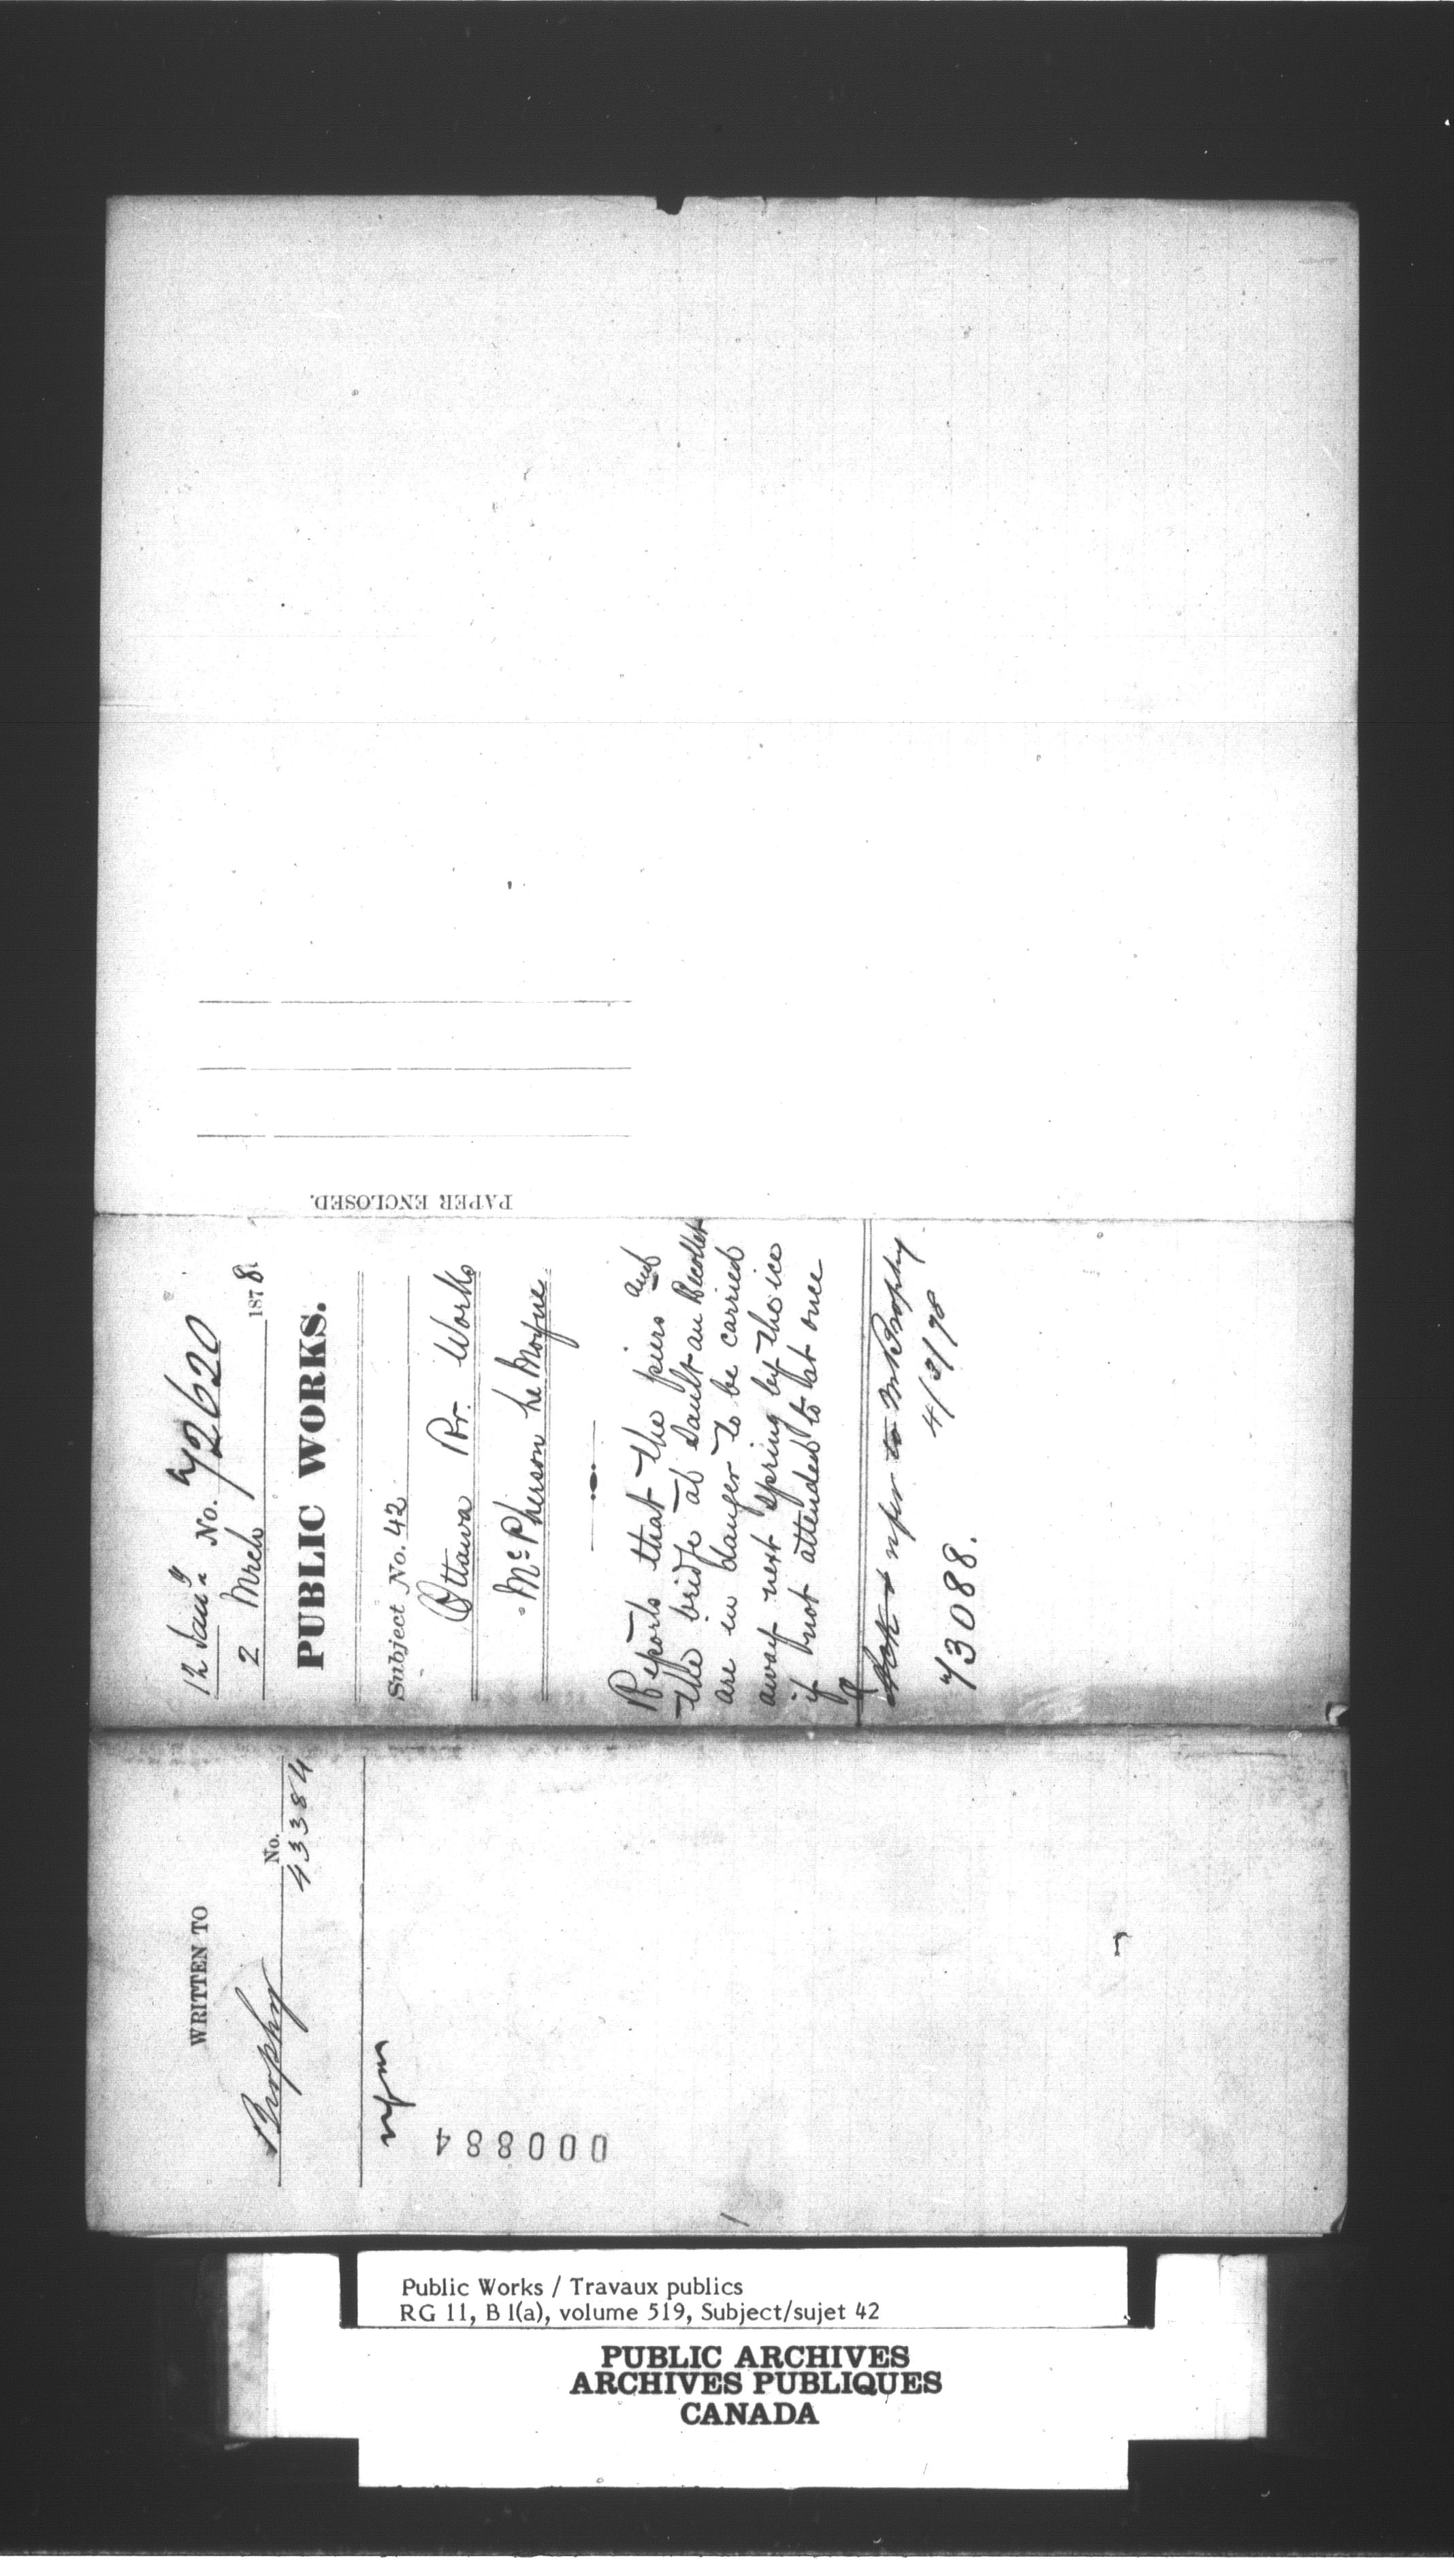 PAPER ENCLOSED.
12 Jany No. 72620
2 Mrch 1878
PUBLIC WORKS.
Subject No. 42
Ottawa Rr. Works
McPherson Le Moyne
Reports that the piers and
the bridge at Sault au Recollet
are in danger to be carried
away next spring by the ice
if not attended to at once
Ack & refer to Mr Brophy
4/3/78
73088.
WRITTEN TO
No.
Brophy 43384
000884
Public Works / Travaux publics
RG 11, B 1(a), volume 519, Subject/sujet 42
PUBLIC ARCHIVES
ARCHIVES PUBLIQUES
CANADA